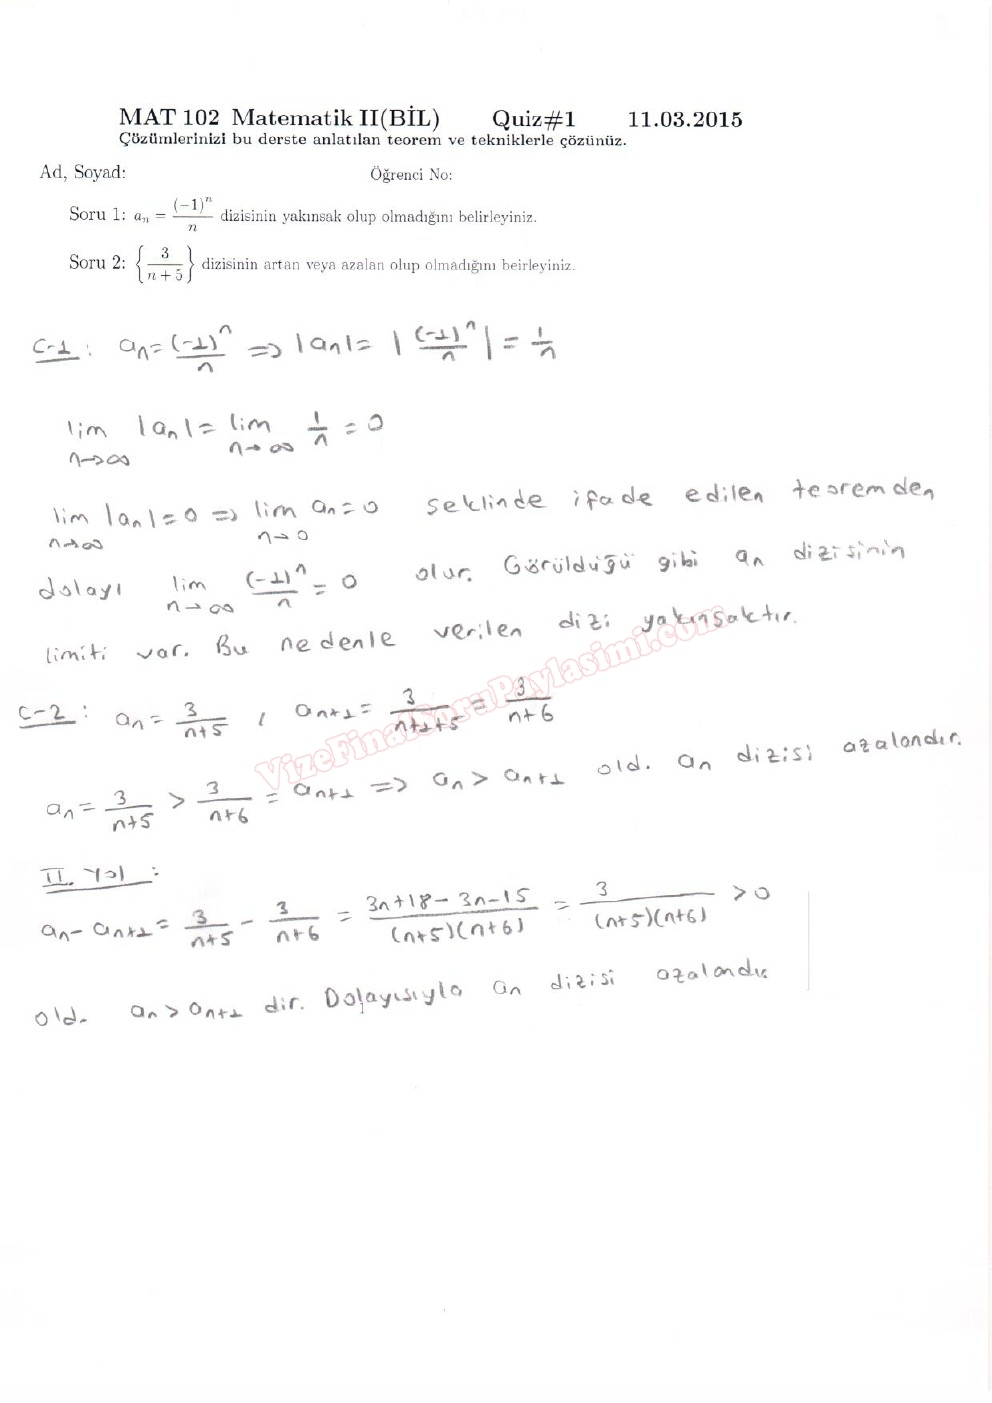 MAT 102 Matematik II(BİL) Quiz#1 11.03.2015
Çözümlerinizi bu derste anlatılan teorem ve tekniklerle çözünüz.
Ad, Soyad: Öğrenci No:
Soru 1: aₙ = (-1)ⁿ/n dizisinin yakınsak olup olmadığını belirleyiniz.
Soru 2: {3/(n+5)} dizisinin artan veya azalan olup olmadığını beirleyiniz.
C-1: aₙ = (-1)ⁿ/n ⇒ |aₙ| = |(-1)ⁿ/n| = 1/n
lim n→∞ |aₙ| = lim n→∞ 1/n = 0
lim n→∞ |aₙ| = 0 ⇒ lim n→0 aₙ = 0 seklinde ifade edilen teoremden
dolayı lim n→∞ (-1)ⁿ/n = 0 olur. Görüldüğü gibi aₙ dizisinin
limiti var. Bu nedenle verilen dizi yakınsaktır.
C-2: aₙ = 3/(n+5) , aₙ₊₁ = 3/(n+1+5) = 3/(n+6)
aₙ = 3/(n+5) > 3/(n+6) = aₙ₊₁ ⇒ aₙ > aₙ₊₁ old. aₙ dizisi azalandır.
II. Yol:
aₙ - aₙ₊₁ = 3/(n+5) - 3/(n+6) = (3n+18-3n-15)/((n+5)(n+6)) = 3/((n+5)(n+6)) > 0
old. aₙ > aₙ₊₁ dir. Dolayısıyla aₙ dizisi azalandır
VizeFinalSoruPaylasimi.com